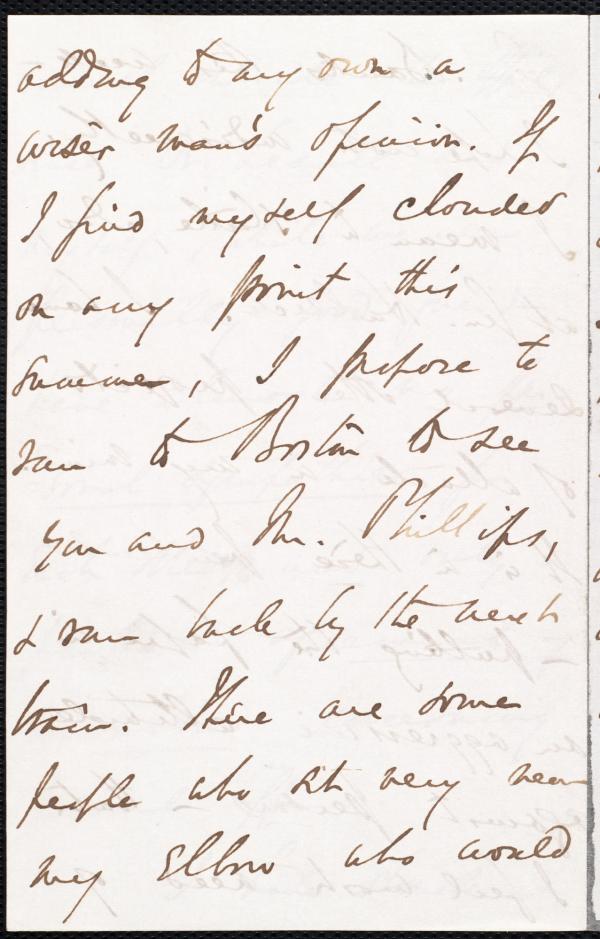 adding to my own a
wiser man's opinion. If
I find myself clouded
on any point this
summer, I propose to
run to Boston to see
you and Mr. Phillips,
& run back by the next
train. There are some
people who sit very near
my Elbow who would